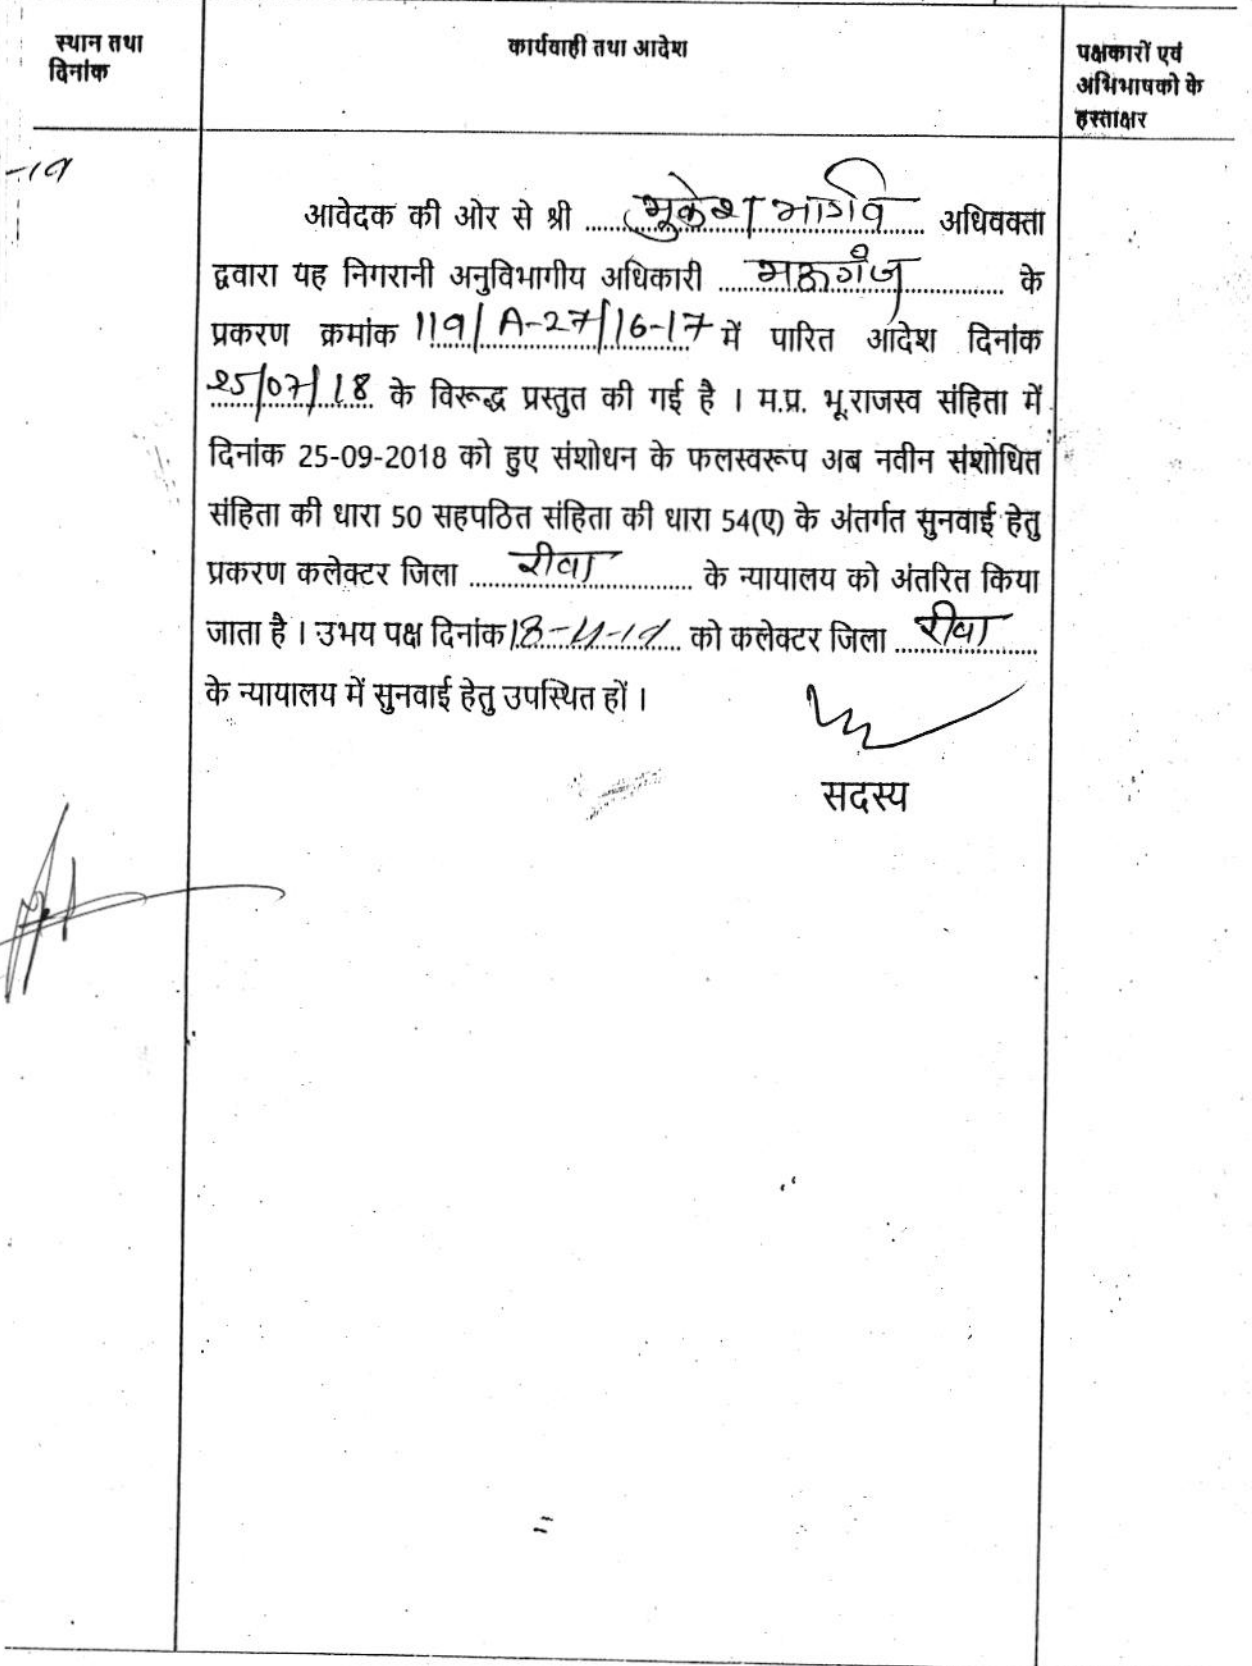 स्थान तथा
दिनांक
कार्यवाही तथा आदेश
पक्षकारों एवं
अभिभाषको के
हस्ताक्षर
-19
आवेदक की ओर से श्री ...मुकेश भार्गव... अधिवक्ता
द्ववारा यह निगरानी अनुविभागीय अधिकारी ...मऊगंज... के
प्रकरण क्रमांक 119/A-27/16-17 में पारित आदेश दिनांक
25/07/18 के विरूद्ध प्रस्तुत की गई है । म.प्र. भू.राजस्व संहिता में
दिनांक 25-09-2018 को हुए संशोधन के फलस्वरूप अब नवीन संशोधित
संहिता की धारा 50 सहपठित संहिता की धारा 54(ए) के अंतर्गत सुनवाई हेतु
प्रकरण कलेक्टर जिला ...रीवा... के न्यायालय को अंतरित किया
जाता है । उभय पक्ष दिनांक 18-4-19 को कलेक्टर जिला ...रीवा...
के न्यायालय में सुनवाई हेतु उपस्थित हों ।
सदस्य